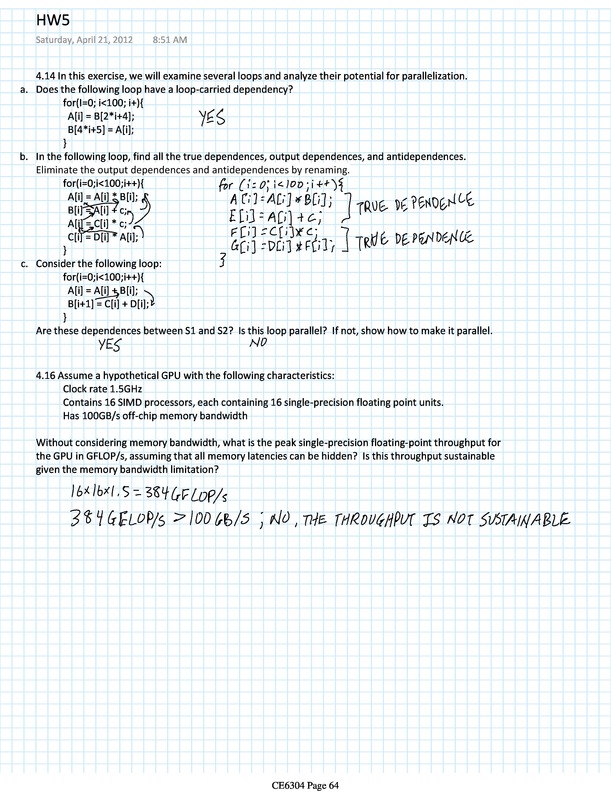 HW5
Saturday, April 21, 2012 8:51 AM
4.14 In this exercise, we will examine several loops and analyze their potential for parallelization.
a. Does the following loop have a loop-carried dependency?
for(I=0; i<100; i+){
A[i] = B[2*i+4];
B[4*i+5] = A[i];
}
YES
b. In the following loop, find all the true dependences, output dependences, and antidependences.
Eliminate the output dependences and antidependences by renaming.
for(i=0;i<100;i++){
A[i] = A[i] * B[i];
B[i] = A[i] + c;
A[i] = C[i] * c;
C[i] = D[i] * A[i];
}
for (i=0; i<100; i++){
A[i]=A[i]*B[i];
E[i]=A[i]+c;
F[i]=C[i]*c;
G[i]=D[i]*F[i];
}
TRUE DEPENDENCE
TRUE DEPENDENCE
c. Consider the following loop:
for(i=0;i<100;i++){
A[i] = A[i] + B[i];
B[i+1] = C[i] + D[i];
}
Are these dependences between S1 and S2? Is this loop parallel? If not, show how to make it parallel.
YES NO
4.16 Assume a hypothetical GPU with the following characteristics:
Clock rate 1.5GHz
Contains 16 SIMD processors, each containing 16 single-precision floating point units.
Has 100GB/s off-chip memory bandwidth
Without considering memory bandwidth, what is the peak single-precision floating-point throughput for
the GPU in GFLOP/s, assuming that all memory latencies can be hidden? Is this throughput sustainable
given the memory bandwidth limitation?
16x16x1.5=384GFLOP/s
384GFLOP/s >100GB/s ; NO, THE THROUGHPUT IS NOT SUSTAINABLE
CE6304 Page 64